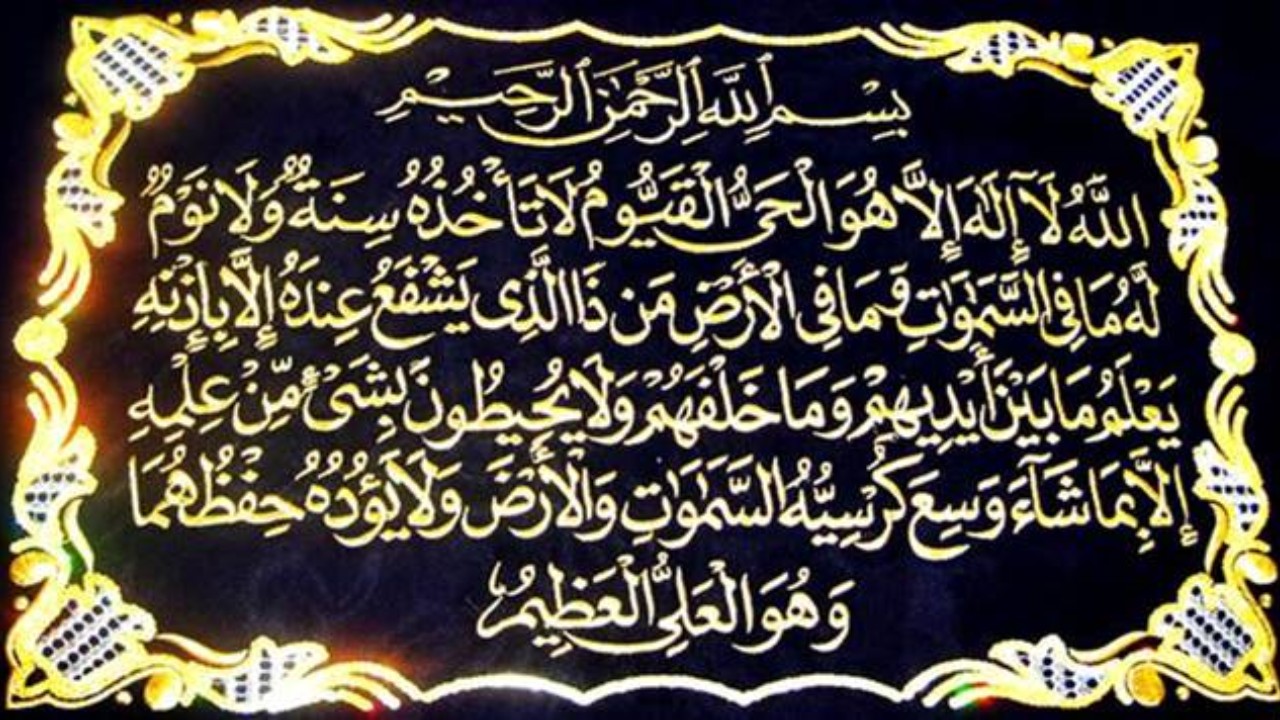 بِسْمِ ٱللَّهِ ٱلرَّحْمَٰنِ ٱلرَّحِيمِ
اللَّهُ لَآ إِلَٰهَ إِلَّا هُوَ الْحَىُّ الْقَيُّومُ لَا تَأْخُذُهُ سِنَةٌ وَلَا نَوْمٌ
لَّهُ مَا فِى السَّمَٰوَٰتِ وَمَا فِى الْأَرْضِ مَن ذَا الَّذِى يَشْفَعُ عِندَهُ إِلَّا بِإِذْنِهِ
يَعْلَمُ مَا بَيْنَ أَيْدِيهِمْ وَمَا خَلْفَهُمْ وَلَا يُحِيطُونَ بِشَىْءٍ مِّنْ عِلْمِهِ
إِلَّا بِمَا شَآءَ وَسِعَ كُرْسِيُّهُ السَّمَٰوَٰتِ وَالْأَرْضَ وَلَا يَؤُدُهُ حِفْظُهُمَا
وَهُوَ الْعَلِىُّ الْعَظِيمُ